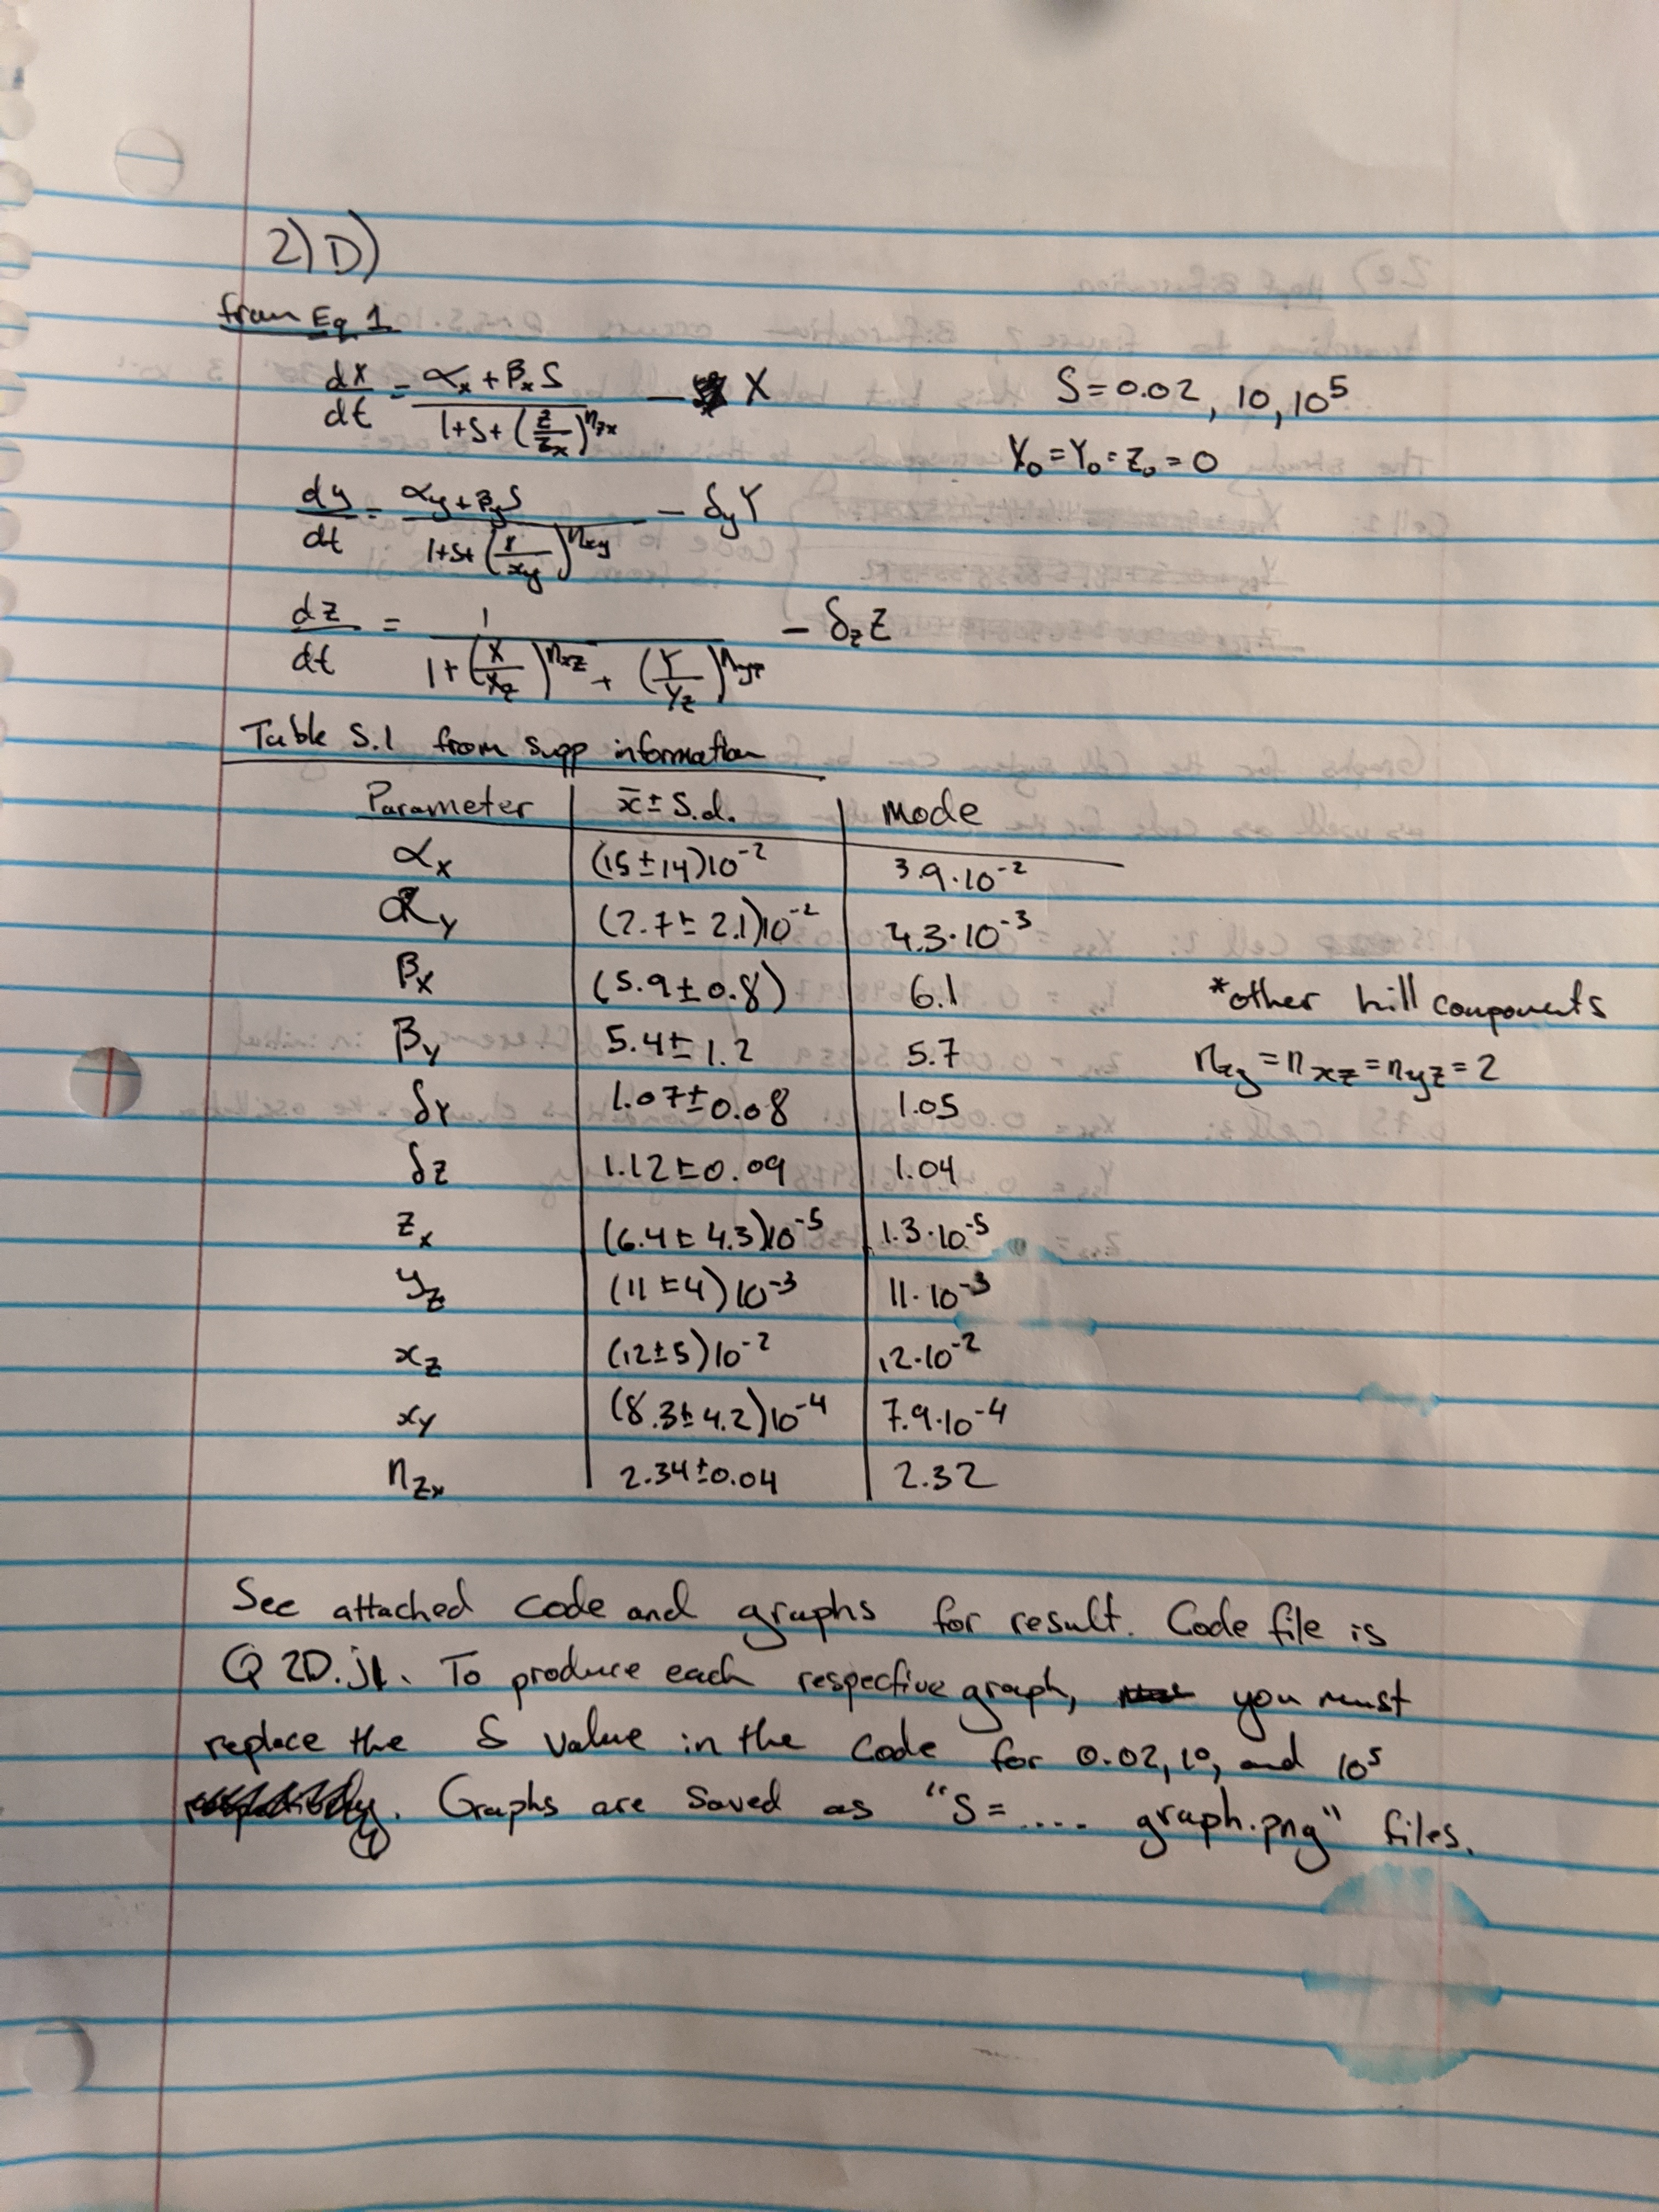 2) D)
from Eq 1
dX/dt = (αx + βx S) / (1+S+(Z/Zx)^nzx) − X
S = 0.02, 10, 10^5
X₀ = Y₀ = Z₀ = 0
dy/dt = (αy + βy S) / (1+S+(X/xy)^nxy) − δyY
dz/dt = 1 / (1+(X/Xz)^nxz + (Y/Yz)^nyz) − δzZ
Table S.1 from supp information
Parameter x̄ ± s.d. Mode
αx (15±14)10^-2 3.9·10^-2
αy (2.7±2.1)10^-2 4.3·10^-3
βx (5.9±0.8) 6.1
βy 5.4±1.2 5.7
δY 1.07±0.08 1.05
δz 1.12±0.09 1.04
zx (6.4±4.3)10^-5 1.3·10^-5
yz (11±4)10^-3 11·10^-3
xz (12±5)10^-2 12·10^-2
xy (8.3±4.2)10^-4 7.9·10^-4
nzx 2.34±0.04 2.32
*other hill components
nxy = nxz = nyz = 2
See attached code and graphs for result. Code file is
Q 2D.jl. To produce each respective graph, you must
replace the S value in the code for 0.02, 10, and 10^5
. Graphs are saved as "S = .... graph.png" files.